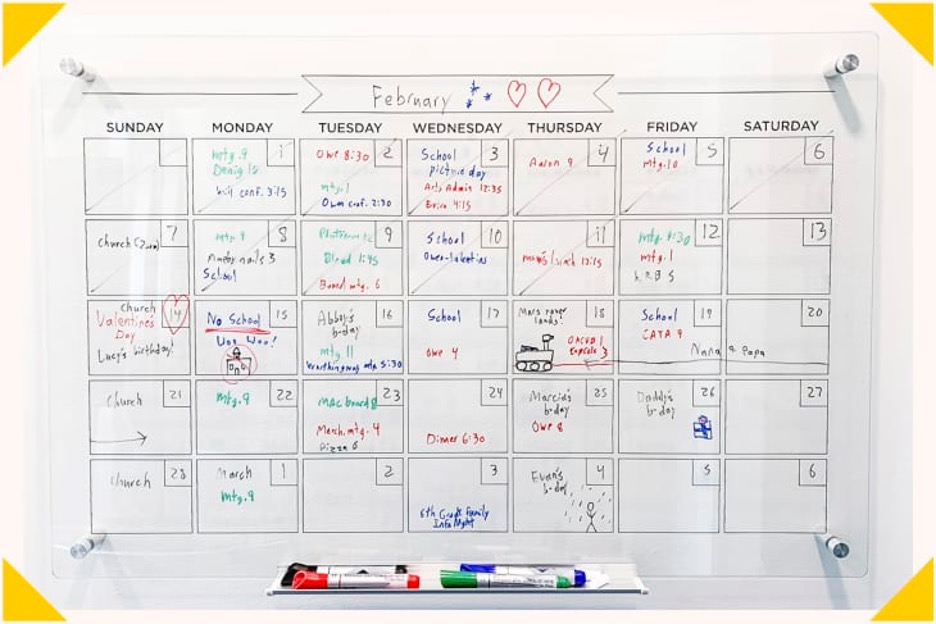 February
SUNDAY MONDAY TUESDAY WEDNESDAY THURSDAY FRIDAY SATURDAY
1
mtg. 9
12
conf. 3:15
2
Owe 8:30
mtg. 1
Owen conf. 2:30
3
School
picture day
Arts Admin 12:35
Erica 4:15
4
Aaron 9
5
School
Mtg. 10
6
7
church
8
mtg 9
nails 3
School
9
1:45
Board mtg. 6
10
School
Owen-Valentins
11
12:15
12
mtg. 9:30
mtg. 1
13
14
church
Valentine's
Day
Lucy's birthday!
15
No School
Woo Woo!
16
Abby's
b-day
mtg 11
mtg 5:30
17
School
Owe 4
18
Mars rover
lands!
3
19
School
CATA 9
Nana & Papa
20
21
Church
22
Mtg. 9
23
MAC board 8
Merch. mtg. 4
Pizza 6
24
Dinner 6:30
25
Marcia's
b-day
Owe 8
26
Daddy's
b-day
27
28
Church
March 1
mtg. 9
2
3
6th Grade Family
Info Night
4
Evan's
b-day
5
6